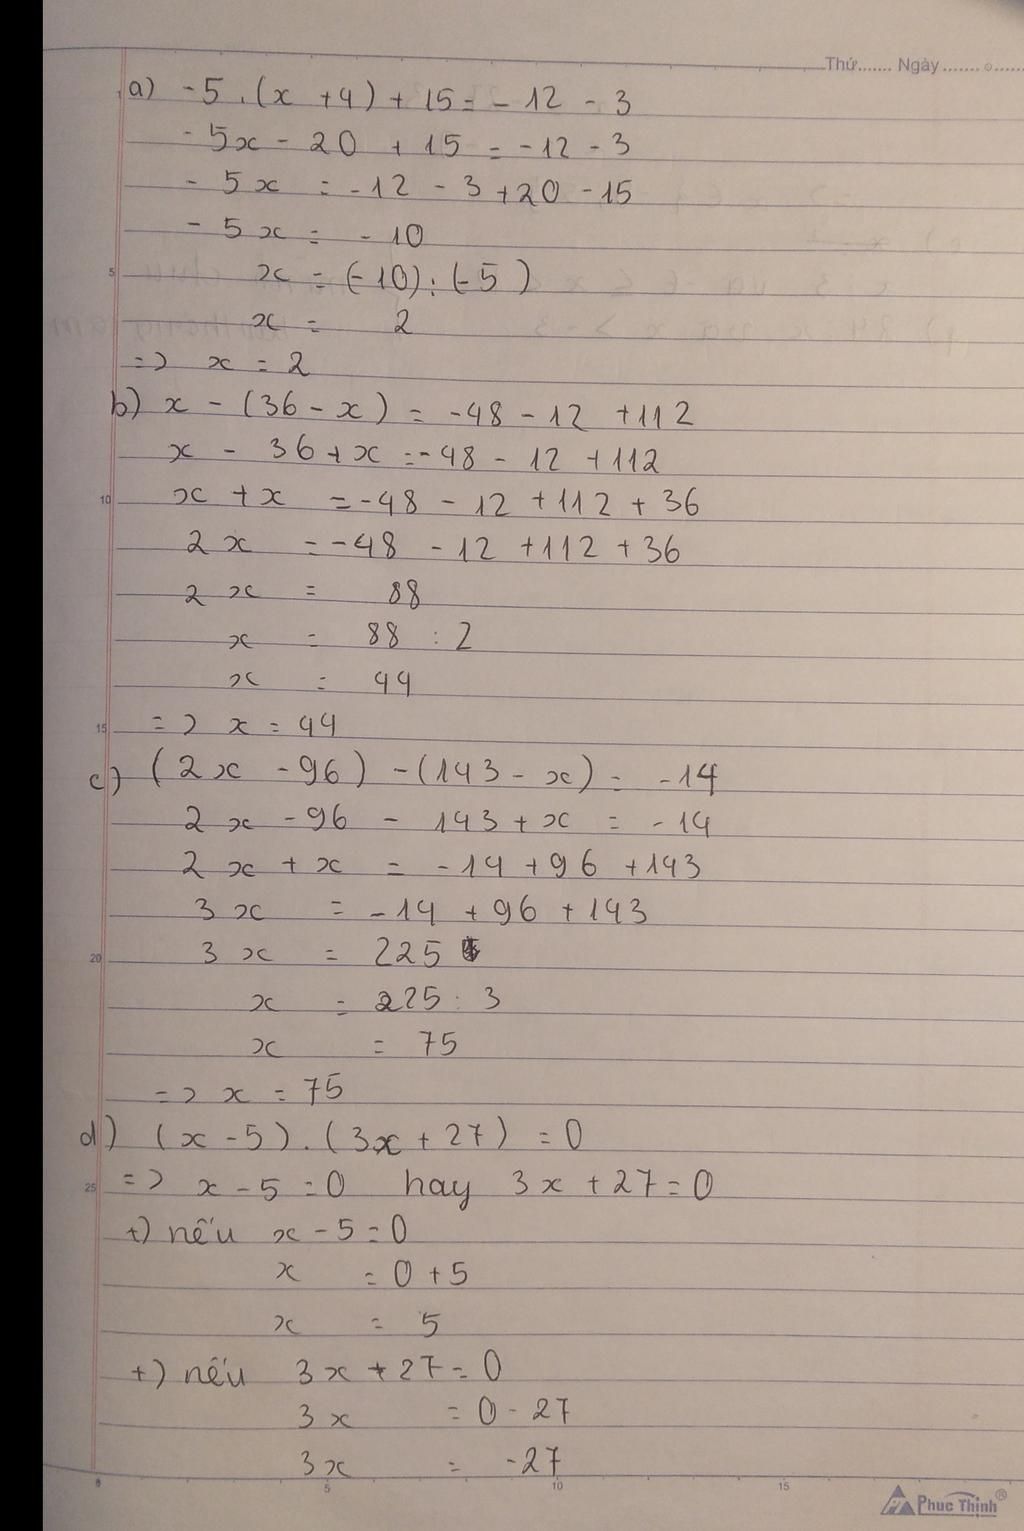 Thứ....... Ngày ....... 
a) -5.(x + 4) + 15 = - 12 - 3
- 5x - 20 + 15 = -12 - 3
- 5x = -12 - 3 + 20 - 15
- 5x = - 10
5
x = (-10) : (-5)
x = 2
=> x = 2
b) x - (36 - x) = -48 - 12 + 112
x - 36 + x = -48 - 12 + 112
10
x + x = -48 - 12 + 112 + 36
2x = -48 - 12 + 112 + 36
2x = 88
x = 88 : 2
x = 44
15
=> x = 44
c) (2x - 96) - (143 - x) = -14
2x - 96 - 143 + x = -14
2x + x = -14 + 96 + 143
3x = -14 + 96 + 143
20
3x = 225
x = 225 : 3
x = 75
=> x = 75
d) (x - 5).(3x + 27) = 0
25
=> x - 5 = 0 hay 3x + 27 = 0
+) nếu x - 5 = 0
x = 0 + 5
x = 5
+) nếu 3x + 27 = 0
3x = 0 - 27
3x = -27
0 5 10 15
Phuc Thinh®